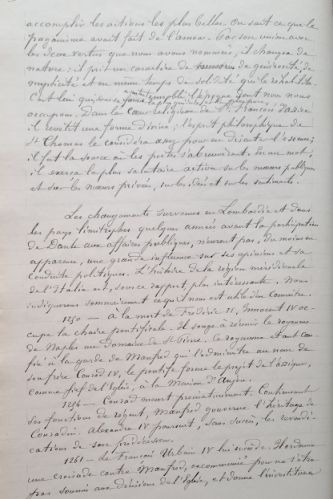 accomplir les actions les plus belles. On sait ce que le
paganisme avait fait de l'amour. Par son union avec
les deux vertus que nous avons nommées, il changea de
nature : il prit un caractère de générosité, de
simplicité et en même temps de solidité qui le réhabilita.
l'époque dont nous nous
occupons. Dans le cœur religieux de St François d'Assise
il revêtit une forme divine ; l'esprit philosophique de
St Thomas le considéra
il fut la source où les poètes s'abreuvèrent. En un mot,
il exerça la plus salutaire action sur les mœurs publiques
et sur les mœurs privées, sur les idées et sur les sentiments.
Les changements survenus en Lombardie et dans
les pays limitrophes quelques années avant la participation
de Dante aux affaires publiques, n'eurent pas, du moins en
apparence, une grande influence sur ses opinions et sa
conduite politiques. L'histoire de la région méridionale
de l'Italie est, sous ce rapport plus intéressante. Nous
indiquerons sommairement ce qu'il nous est utile d'en connaître.
1250 — À la mort de Frédéric II, Innocent IV oc-
cupa la chaire pontificale. Il songe à réunir le royaume
de Naples au Domaine de St Pierre. Ce royaume étant con-
fié à la garde de Manfred qui l'administre au nom de
son frère Conrad IV, le pontife forme le projet de l'assigner,
comme fief de l'Église, à la Maison d'Anjou.
1254 — Conrad meurt prématurément. Continuant
ses fonctions de régent, Manfred gouverne l'héritage de
Conradin. Alexandre IV poursuit, sans succès, les revendi-
cations de son prédécesseur.
1261 — Le Français Urbain IV lui succède. Il ordonne
une croisade contre Manfred, excommunié pour ne s'être
pas soumis aux décisions de l'Église, et donne l'investiture